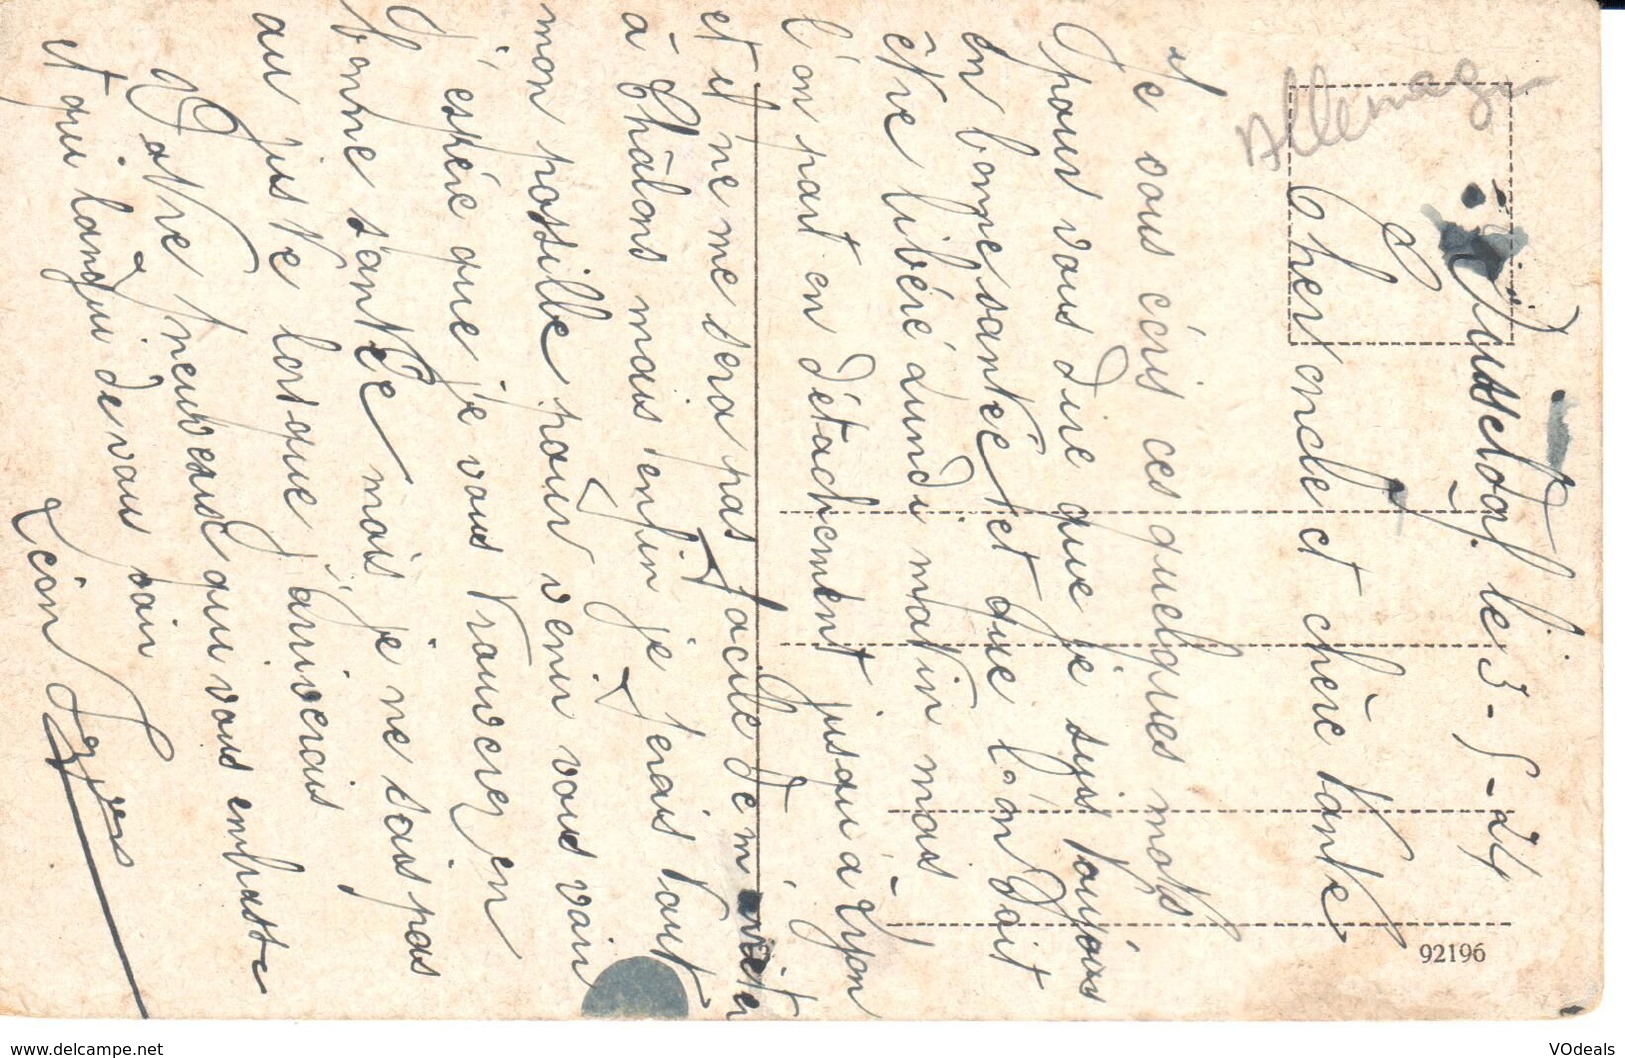 Allemagne
Dusseldorf. le 3-5-24
Cher oncle et chère tante
Je vous écris ces quelques mots
pour vous dire que je suis toujours
en bonne santée et que l'on doit
être libéré lundi matin mais
l'on part en détachement jusqu'a Lyon
et il ne me sera pas facile de m'arrêter
à Châlons mais enfin je ferais tout
mon possible pour venir vous voir
J'espére que je vous trouverez en
bonne santée mais je ne sais pas
au juste lorsque j'arriverais
Votre neuveux qui vous embrasse
et qui langui de vous voir
Léon
92196
www.delcampe.net
VOdeals